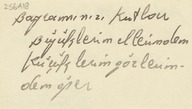 256A18
Bayramınızı Kutlar
Büyüklerin ellerinden
Küçüklerin gözlerin-
den öper